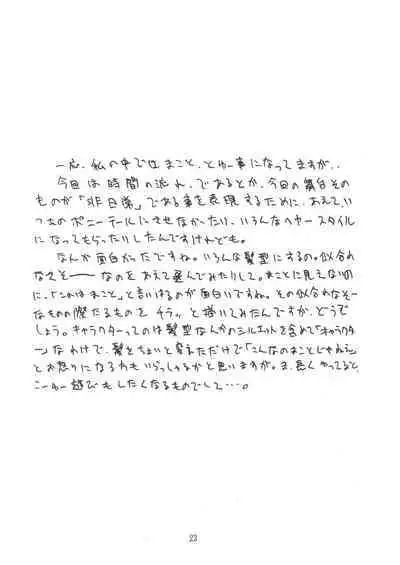 一応、私の中ではまこと、とゆー事になってますが、
今回は時間の流れ、であるとか、今回の舞台その
ものが「非日常」である事を表現するために、あえて、い
つものポニーテールにさせなかったり、いろんなヘアースタイル
になってもらったりしたんですけれども。
なんか面白かったですね。いろんな髪型にするの。似合わ
なさそーーなのをあえて選んでみたりして。まことに見えないの
に、「これはまこと」と言いはるのが面白いですね。その似合わなそー
なものの際たるものをチラッと描いてみたんですが、どうで
しょう。キャラクターってのは髪型なんかのシルエットを含めて「キャラクタ
ー」なわけで、髪をちょいと変えただけで「こんなのまことじゃねえ」
とお怒りになる方もいらっしゃるかと思いますが。ま、長くやってると、
こーゆー遊びもしたくなるものでして…。
23